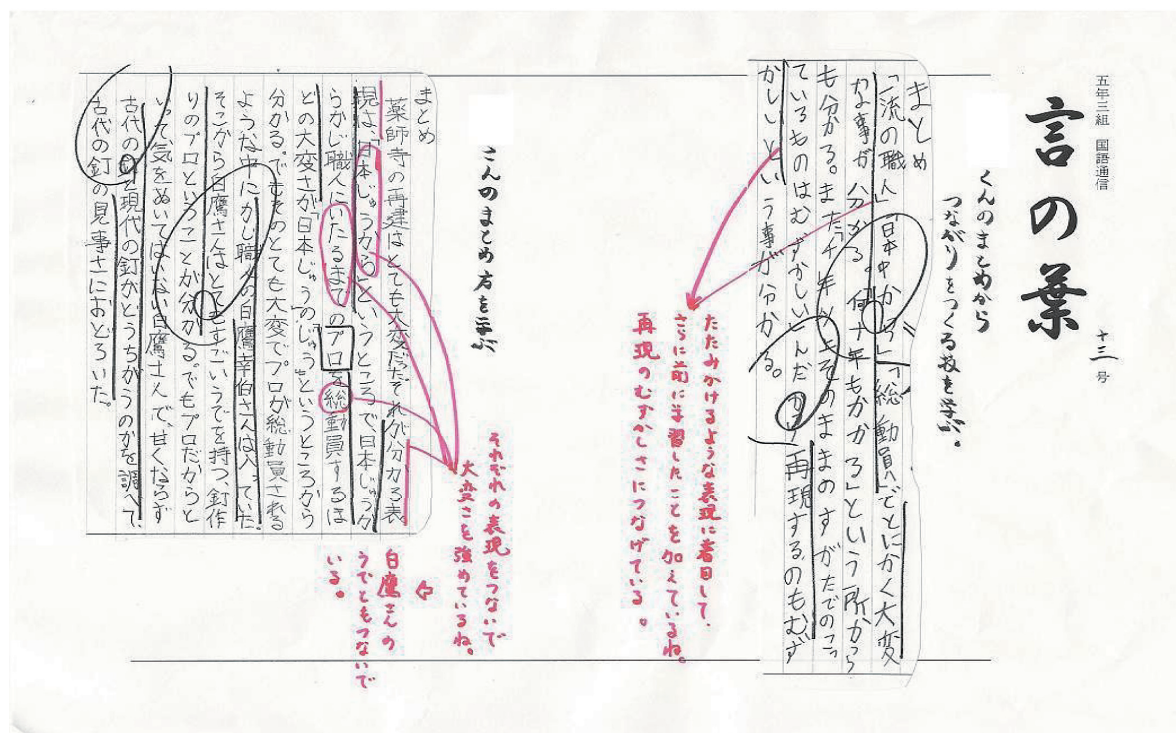 五年三組 国語通信
言の葉
十三号
くんのまとめから
つながりをつくる技を学ぶ。
まとめ
「一流の職人」「日本中から」「総動員」でとにかく大変
な事が分かる。「何十年もかかる」という所から
も分かる。また「千年以上そのままのすがたでのこっ
ているものはむずかしい」んだから再現するのもむず
かしいという事が分かる。
たたみかけるような表現に着目して、
さらに前に学習したことを加えているね。
再現のむずかしさにつなげている。
さんのまとめ方を学ぶ
まとめ
薬師寺の再建はとても大変だ。それが分かる表
現は、「日本じゅうから」というところで日本じゅうか
らかじ職人にいたるまでのプロを総動員するほ
どの大変さが「日本じゅう」の「じゅう」というところから
分かる。でもそのとても大変でプロが総動員される
ような中にかじ職人の白鷹幸伯さんは入っていた。
そこから白鷹さんはとてもすごいうでを持つ、釘作
りのプロということが分かる。でもプロだからと
いって気をぬいてはいない白鷹さんで、甘くならず
古代の釘と現代の釘がどうちがうのかを調べて、
古代の釘の見事さにおどろいた。
それぞれの表現をつないで
大変さを強めているね。
白鷹さんの
うでともつないで
いる。